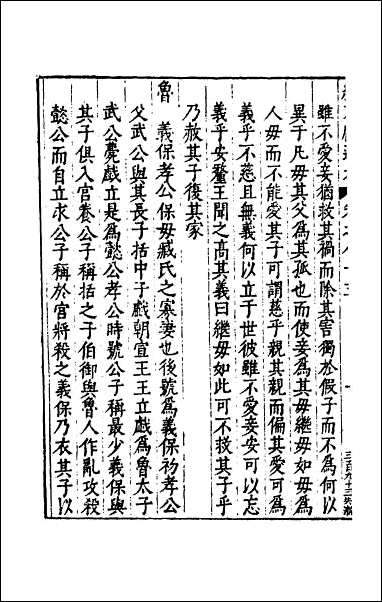 雖不愛妾猶救其禍而除其害獨於假子而不爲何以
異于凡母其父爲其孤也而使妾爲其母繼母如母爲
人母而不能愛其子可謂慈乎親其親而偏其愛可爲
義乎不慈且無義何以立于世彼雖不愛妾安可以忘
義乎安釐王聞之高其義曰繼母如此可不救其子乎
乃赦其子復其家
魯　義保孝公保母臧氏之寡妻也後號爲義保初孝公
父武公與其長子括中子戲朝宣王王立戲爲魯太子
武公薨戲立是爲懿公孝公時號公子稱最少義保與
其子俱入宮養公子稱括之子伯御與魯人作亂攻殺
懿公而自立求公子稱於宮將殺之義保乃衣其子以